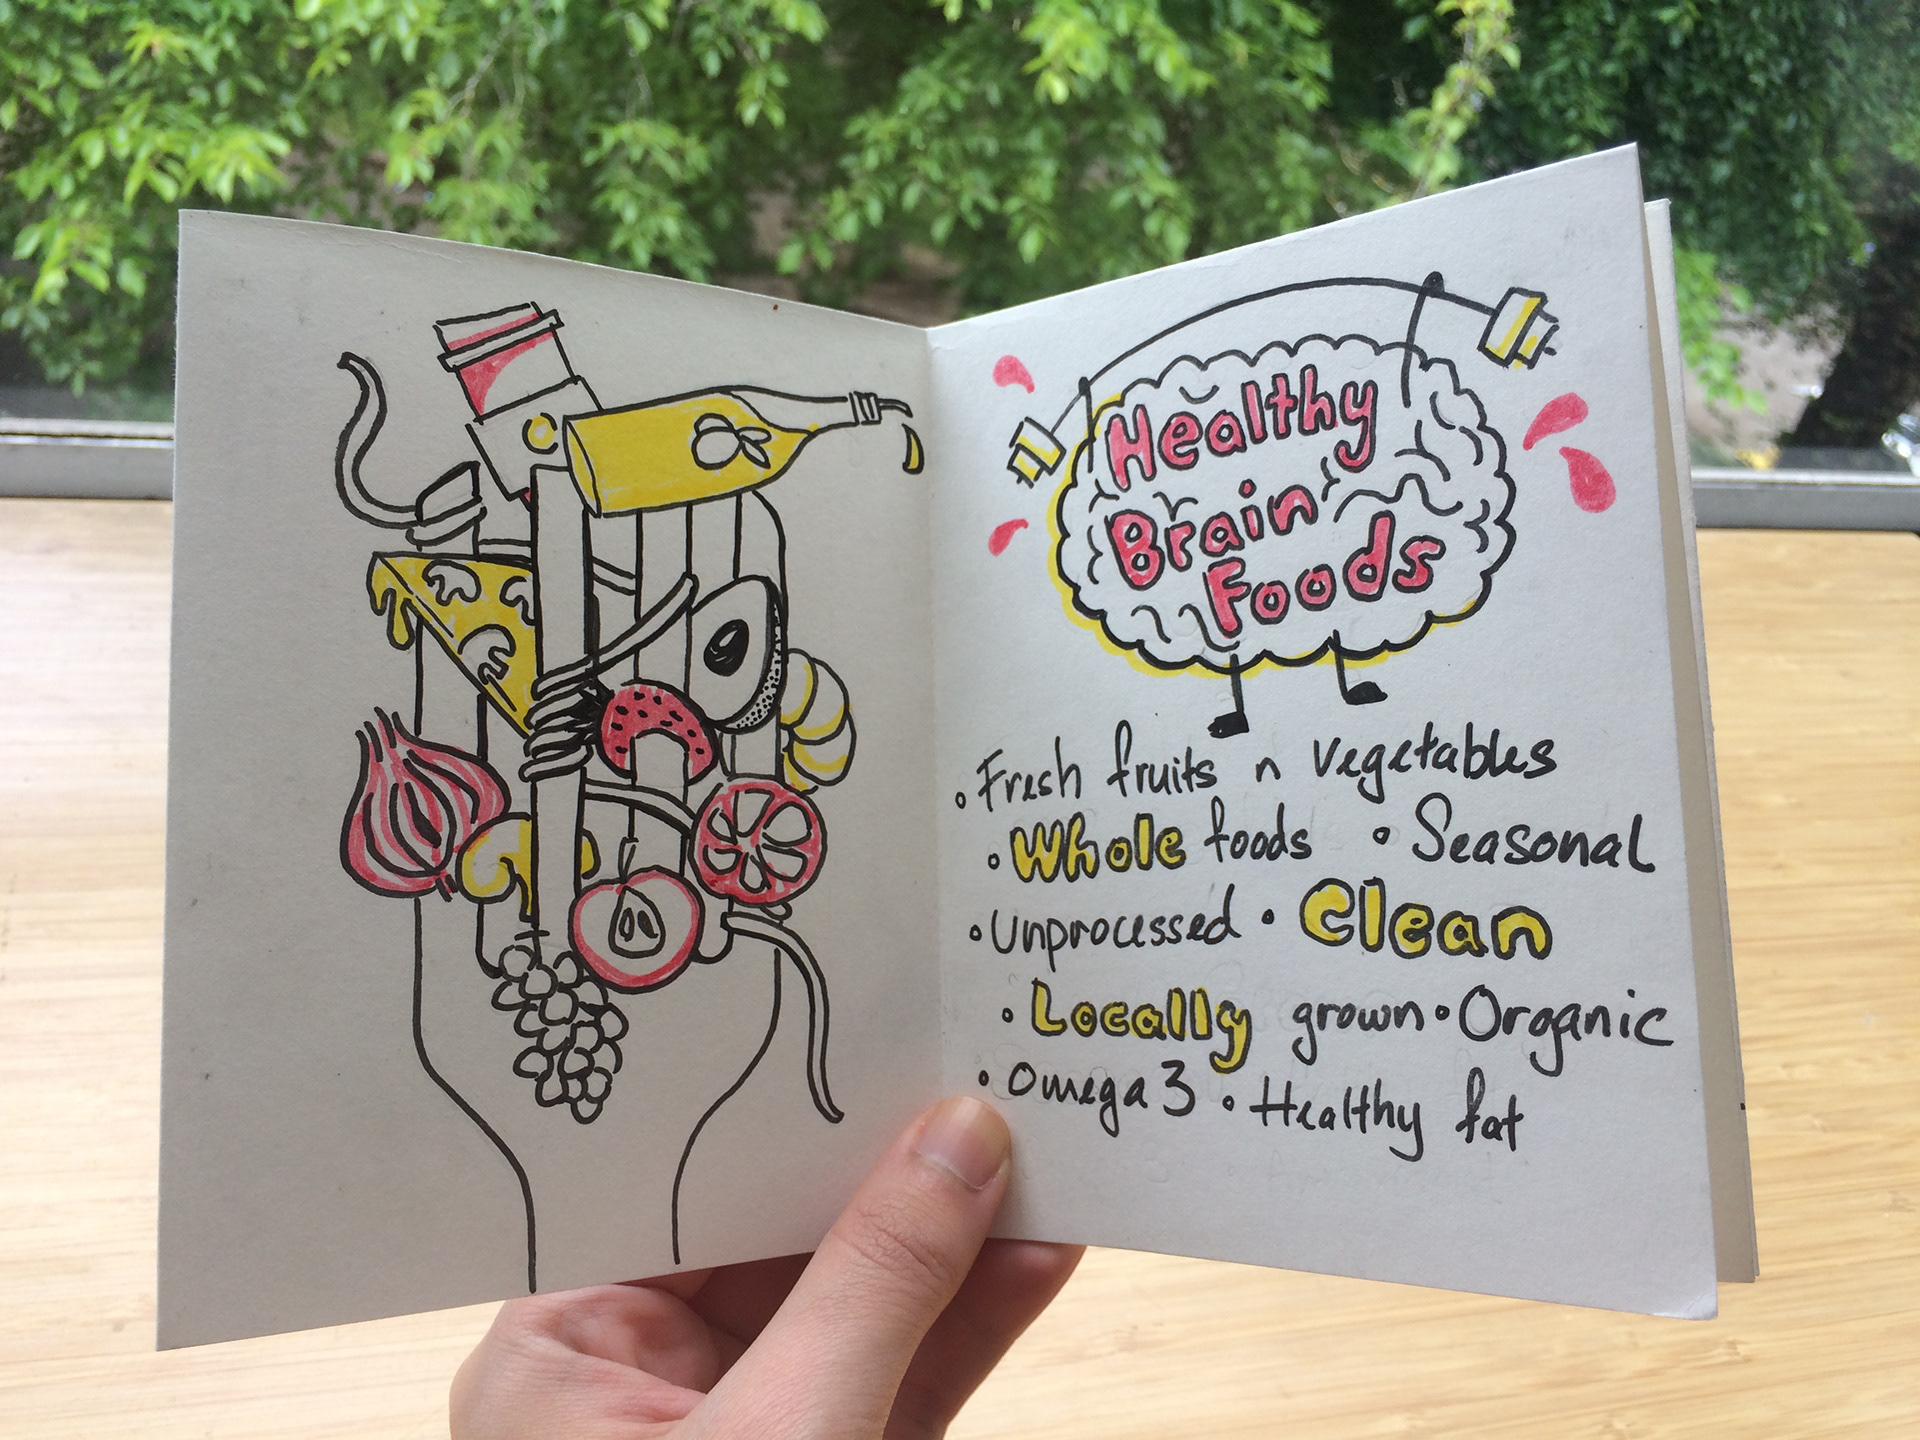 Healthy
Brain
Foods
• Fresh fruits n vegetables
• Whole foods • Seasonal
• Unprocessed • Clean
• Locally grown • Organic
• Omega 3 • Healthy fat